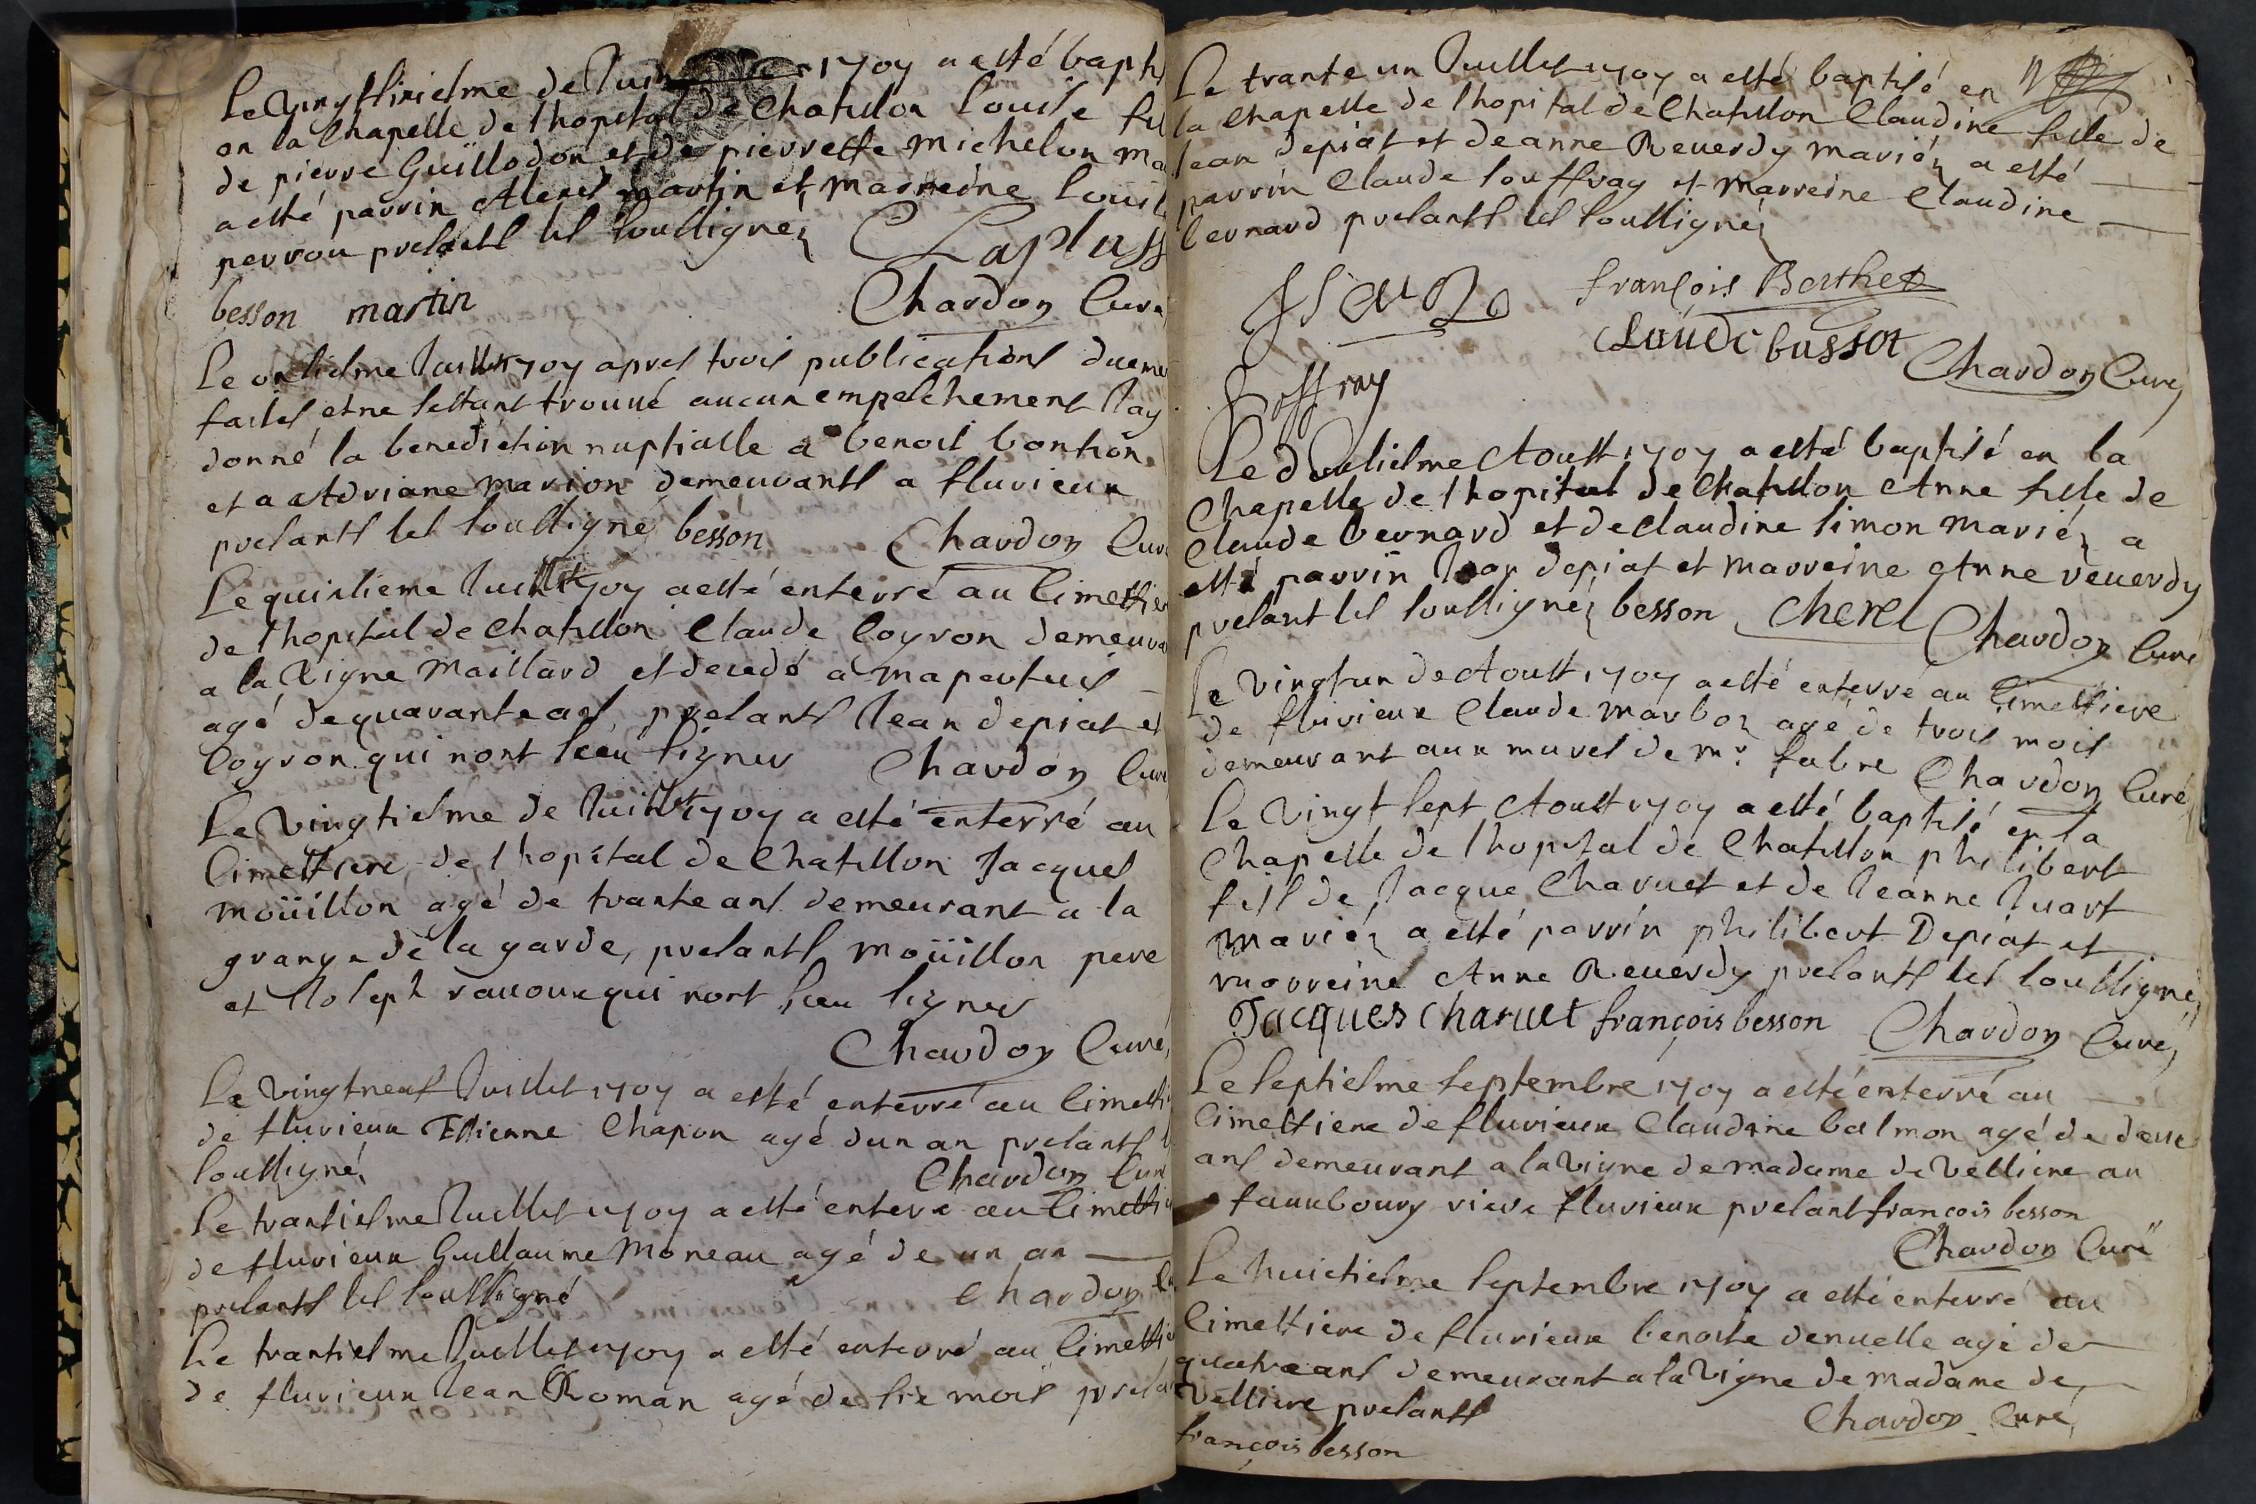 Le Vingtsiziesme de Juin 1709 a esté baptis
en la Chapelle de l'hopital de Chatillon Louise fil
de pierre Guillodon et de pierrette michelon ma
a esté parrin Alexis martin et marreine Louis
perrou presants les soussignez
besson martin Chardon Curé
Le onsiesme Juillet 1709 apres trois publications dueme
faites, et ne sestant trouué aucun empeschement Jay
donné la benediction nuptialle a benoit bontron
et a Adriane marion demeurants a fluvieux
presants les soussigné besson Chardon Curé
Le quinsieme Juillet 1709 a esté enterré au Cimettier
de l'hopital de Chatillon Claude Coyron demeura
a la Vigne Maillard et decedé a mapertuis
agé de quarante ans, presants Jean depiat et
Coyron qui nont sceu signer Chardon Curé
Le Vingtiesme de Juillet 1709 a esté enterré au
Cimettiere de l'hopital de Chatillon Jacques
moüillon agé de trante ans demeurant a la
grange de la garde, presants moüillon pere
et Joseph rauoux qui nont sceu signer
Chardon Curé,
Le Vingtneuf Juillet 1709 a esté enterré au Cimetti
de fluvieux Etienne Chapon agé dun an presants l
soussigné, Chardon Curé
Le trantiesme Juillet 1709 a esté enterré au Cimetti
de fluvieux Guillaume Moneau agé de un an
presants les soussigné Chardon
Le trantiesme Juillet 1709 a esté enterré au Cimettie
de fluvieux Jean Roman agé de six mois presa
Le trante un Juillet 1709 a esté baptisé en
la Chapelle de l'hopital de Chatillon Claudine fille de
Jean depiat et de anne Reuerdy mariéz a esté
parrin Claude Jouffray et marreine Claudine
bernard presants les soussignéz
françois Berthet
Claude bussot Chardon Curé
Joffray
Le dousiesme Aoust 1709 a esté baptisé en la
Chapelle de l'hopital de Chatillon Anne fille de
Claude bernard et de Claudine simon mariéz a
esté parrin Jean depiat et marreine Anne reuerdy
presant les soussignéz besson Cherel Chardon Curé
Le Vingtun de Aoust 1709 a esté enterré au Cimettiere
de fluvieux Claude marboz agé de trois mois
demeurant aux mures de mr. fabre Chardon Curé
Le Vingt sept Aoust 1709 a esté baptisé en la
Chapelle de l'hopital de Chatillon philibert
fils de Jacque Charuet et de Jeanne Juart
mariéz a esté parrin philibert Depiat et
marreine Anne Reuerdy presants les soussignéz
Jacques Charuet françois besson Chardon Curé
Le septiesme septembre 1709 a esté enterré au
Cimettiere de fluvieux Claudine balmon agé de deux
ans demeurant a la vigne de madame de Vessiere au
fauxbourg riere fluvieux presant françois besson
Chardon Curé
Le huictiesme septembre 1709 a esté enterré au
Cimettiere de fluvieux benoite denuelle agé de
quatre ans demeurant a la Vigne de madame de
Vessiere presants Chardon Curé,
françois besson